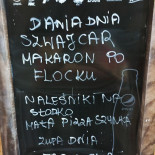 DANIA DNIA
SZWAJCAR
MAKARON PO
FLOCKU
NALEŚNIKI NA
SŁODKO
MAŁA PIZZA SZYNKA
ZUPA DNIA